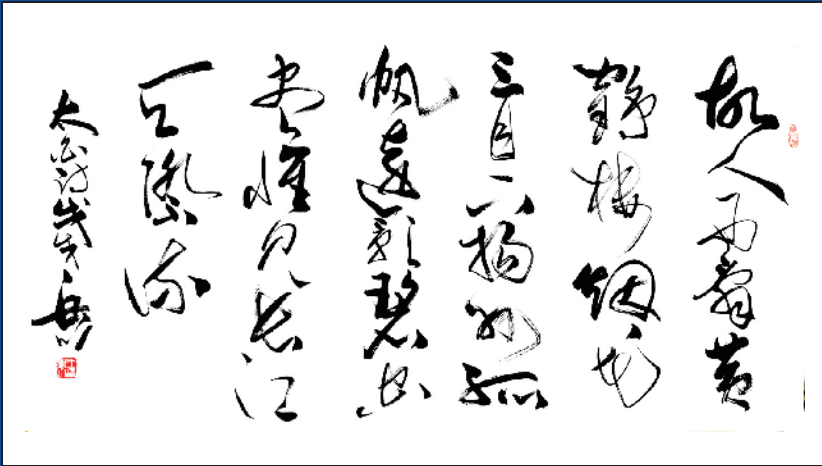 故人西辭黃
鶴樓烟花
三月下揚州孤
帆遠影碧空
盡惟見長江
天際流
太白詩